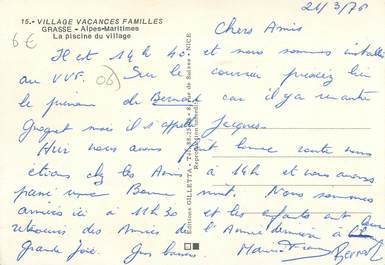 15.- VILLAGE VACANCES FAMILLES
GRASSE - Alpes-Maritimes
La piscine du village
6€
21/3/76
Chers Amis
Il est 14h 40 et nous sommes installés
au VVF. (06) Sur le courrier précisez bien
le prénom de Bernard car il y a un autre
Gregnet mais il s'appelle Jacques.
Hier nous avons fait bonne route nous
étions chez les Amis à 14h et nous avons
passé une Bonne nuit. Nous sommes
arrivés ici à 11h30 et les enfants ont
retrouvés des Amies de l'Année dernière
Grande Joie. Gros baisers
Bernard
Editions GILLETTA - Tél. - 8, rue de Suisse - NICE
Reproduction interdite